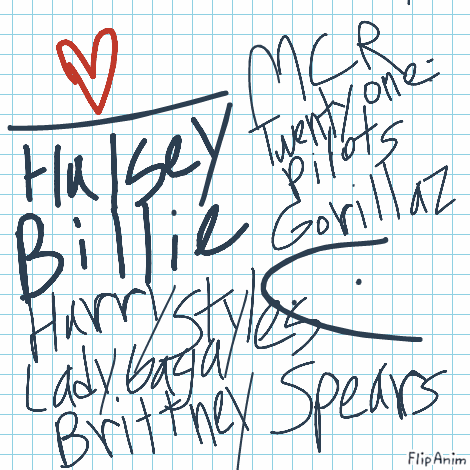 Halsey
Billie
Harry Styles
Lady Gaga
Brittney Spears
MCR
Twenty one
Pilots
Gorillaz
FlipAnim